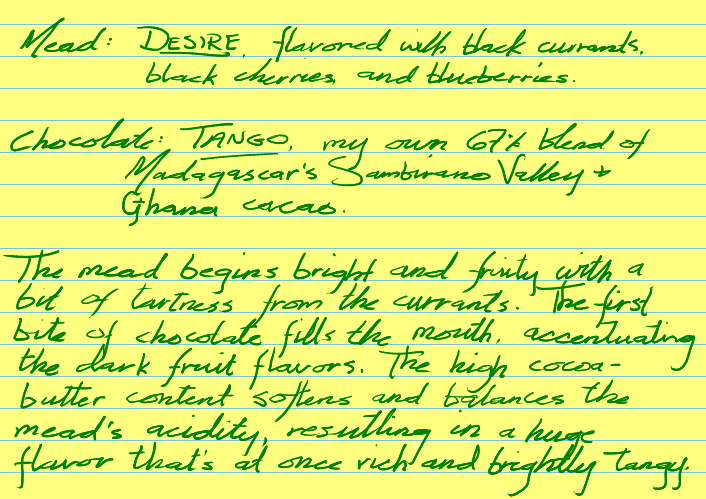 Mead: DESIRE, flavored with black currants,
black cherries, and blueberries.
Chocolate: TANGO, my own 67% blend of
Madagascar's Sambirano Valley +
Ghana cacao.
The mead begins bright and fruity with a
bit of tartness from the currants. The first
bite of chocolate fills the mouth, accentuating
the dark fruit flavors. The high cocoa-
butter content softens and balances the
mead's acidity, resulting in a huge
flavor that's at once rich and brightly tangy.